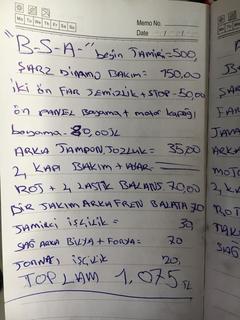 Memo No.
Mo Tu We Th Fr Sa Su
Date
"B-S-A-" beyin TAMiRi=500,
ŞARZ DiNAMO BAKIM= 150,00
iki ÖN FAR TEMiZLiK+STOP-50,00
ön PANEL Boyama+motor kapağı
boyama-80,00tl
ARKA TAMPON 35,00
2 KAPI BAKIM+
ROT+4 LASTiK BALANS 70,00
BiR TAKIM ARKA FREN BALATA 70
TAMiRci işçiLiK= 30,
SAĞ ARKA BiLYA+ 70
işçiLiK 20,
TOPLAM 1,075 TL